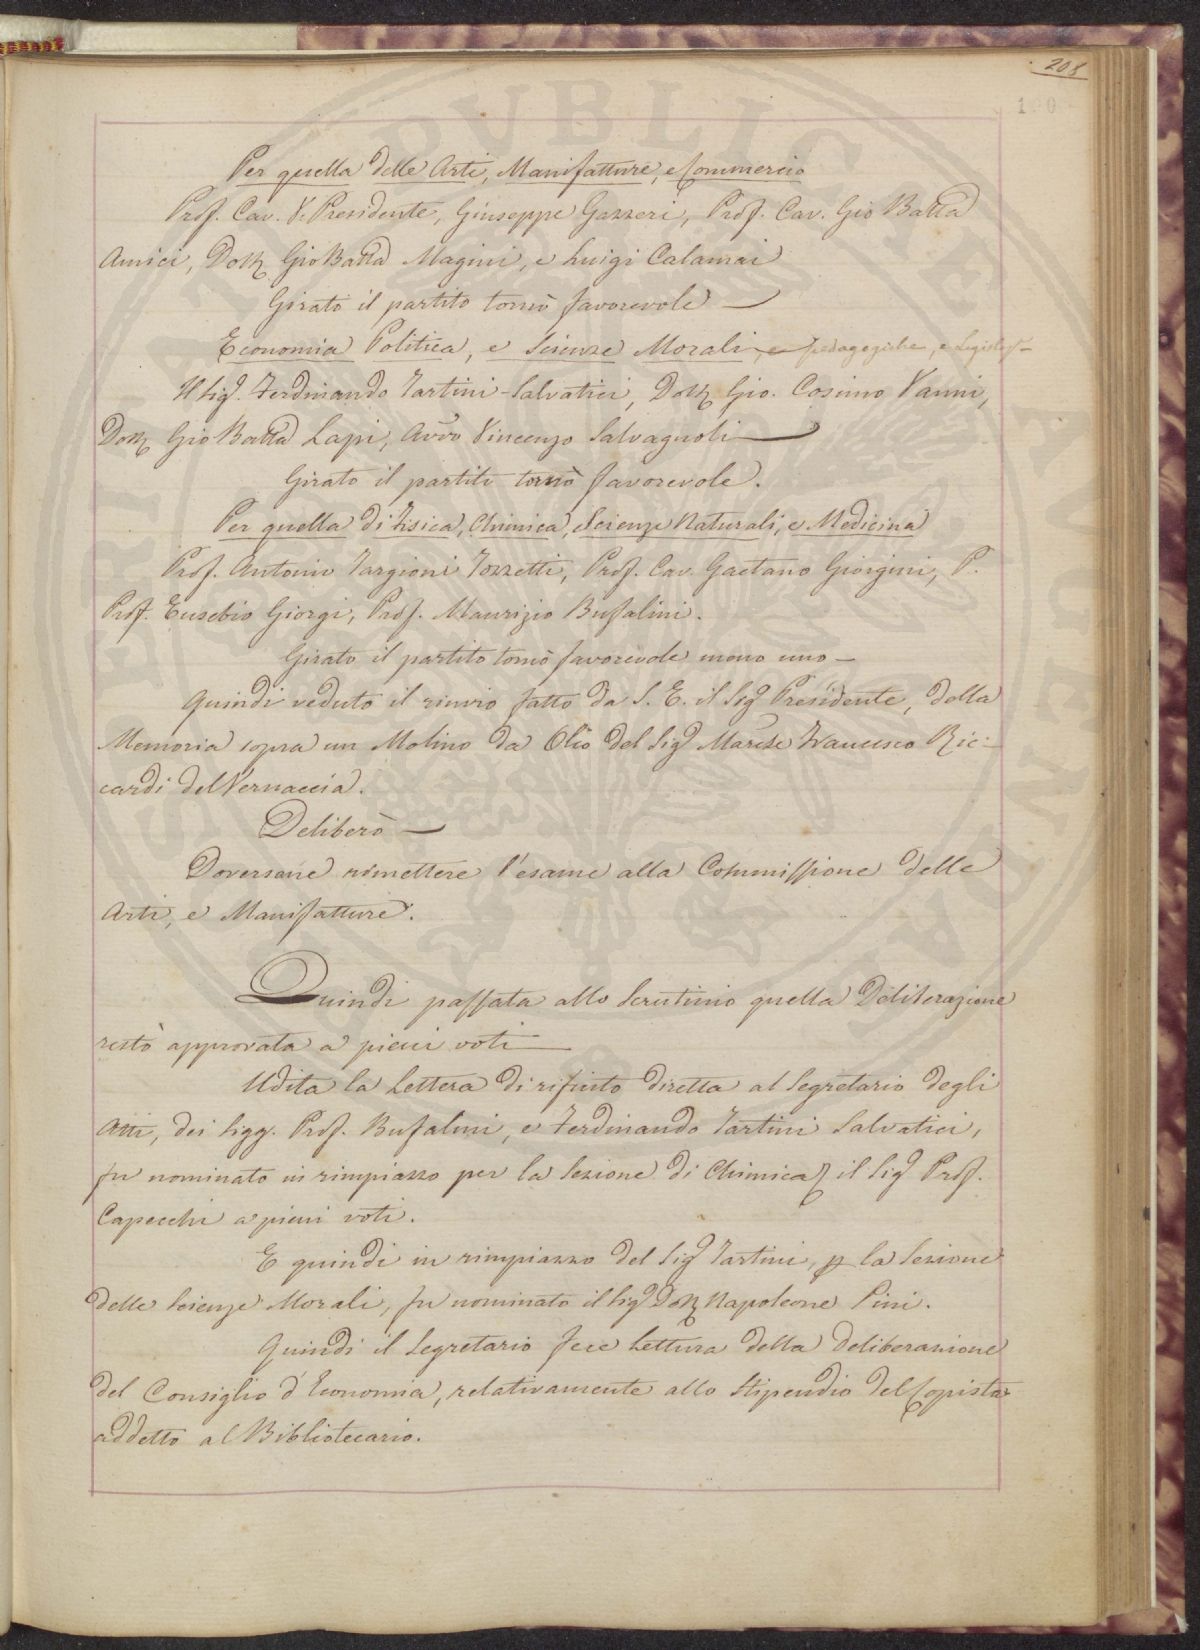 208
Per quella delle Arti, Manifatture, e Commercio
Prof. Cav. V. Presidente, Giuseppe Gazzeri, Prof. Cav. Gio Batta
Amici, Dott. Gio Batta Magini, e Luigi Calamai
Girato il partito tornò favorevole
Economia Politica, e Scienze Morali, e pedagogiche, e Legislaz.
Il Sig. Ferdinando Tartini-Salvatici, Dott. Gio. Cosimo Vanni,
Dott. Gio Batta Lapi, Avvo Vincenzo Salvagnoli
Girato il partito tornò favorevole.
Per quella di Fisica, Chimica, e Scienze Naturali, e Medicina
Prof. Antonio Targioni Tozzetti, Prof. Cav. Gaetano Giorgini, P.
Prof. Eusebio Giorgi, Prof. Maurizio Bufalini.
Girato il partito tornò favorevole meno uno —
Quindi veduto il rinvio fatto da S. E. il Sig Presidente, della
Memoria sopra un Molino da Olio del Sig March.se Francesco Ric-
cardi del Vernaccia.
Deliberò —
Doversene rimettere l'esame alla Commissione delle
Arti, e Manifatture.
Quindi passata allo scrutinio quella Deliberazione
restò approvata a pieni voti
Udita la Lettera di rifiuto diretta al Segretario degli
Atti, dei Sigg. Prof. Bufalini, e Ferdinando Tartini Salvatici,
fu nominato in rimpiazzo per la Sezione di Chimica il Sig Prof.
Capecchi a pieni voti.
E quindi in rimpiazzo del Sig Tartini, p la Sezione
delle Scienze Morali, fu nominato il Sig Dott. Napoleone Pini.
Quindi il Segretario fece Lettura della deliberazione
del Consiglio d'Economia, relativamente allo Stipendio del Copista
addetto al Bibliotecario.